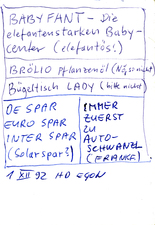 BABYFANT - Die
elefantenstarken Baby-
center (elefantös!)
BRÖLIO Pflanzenöl (No, so nicht)
Bügeltisch LADY (bitte nicht)
DE SPAR
EURO SPAR
INTER SPAR
(Solarspar?)
IMMER
ZUERST
ZU
AUTO-
SCHWANZL
(FRANKE)
1 XII 92 HD EGON